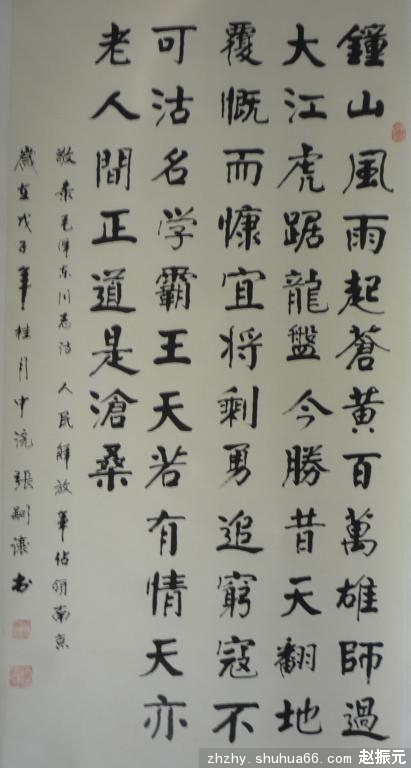 鐘山風雨起蒼黃百萬雄師過
大江虎踞龍盤今勝昔天翻地
覆慨而慷宜將剩勇追窮寇不
可沽名学霸王天若有情天亦
老人間正道是滄桑
敬录毛泽东同志诗 人民解放軍佔领南京
歲在戊子年桂月中流張嗣书
zhzhy.shuhua66.com 赵振元